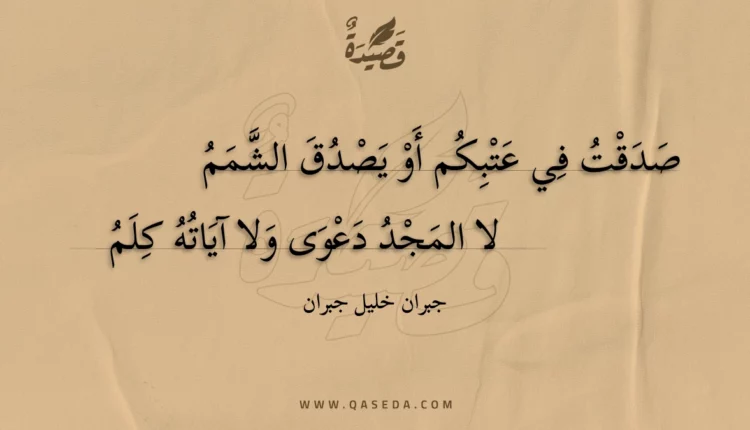 قَصِيدَةٌ
صَدَقْتُ فِي عَتْبِكُم أَوْ يَصْدُقَ الشَّمَمُ
لا المَجْدُ دَعْوَى وَلا آيَاتُهُ كِلَمُ
جبران خليل جبران
WWW.QASEDA.COM